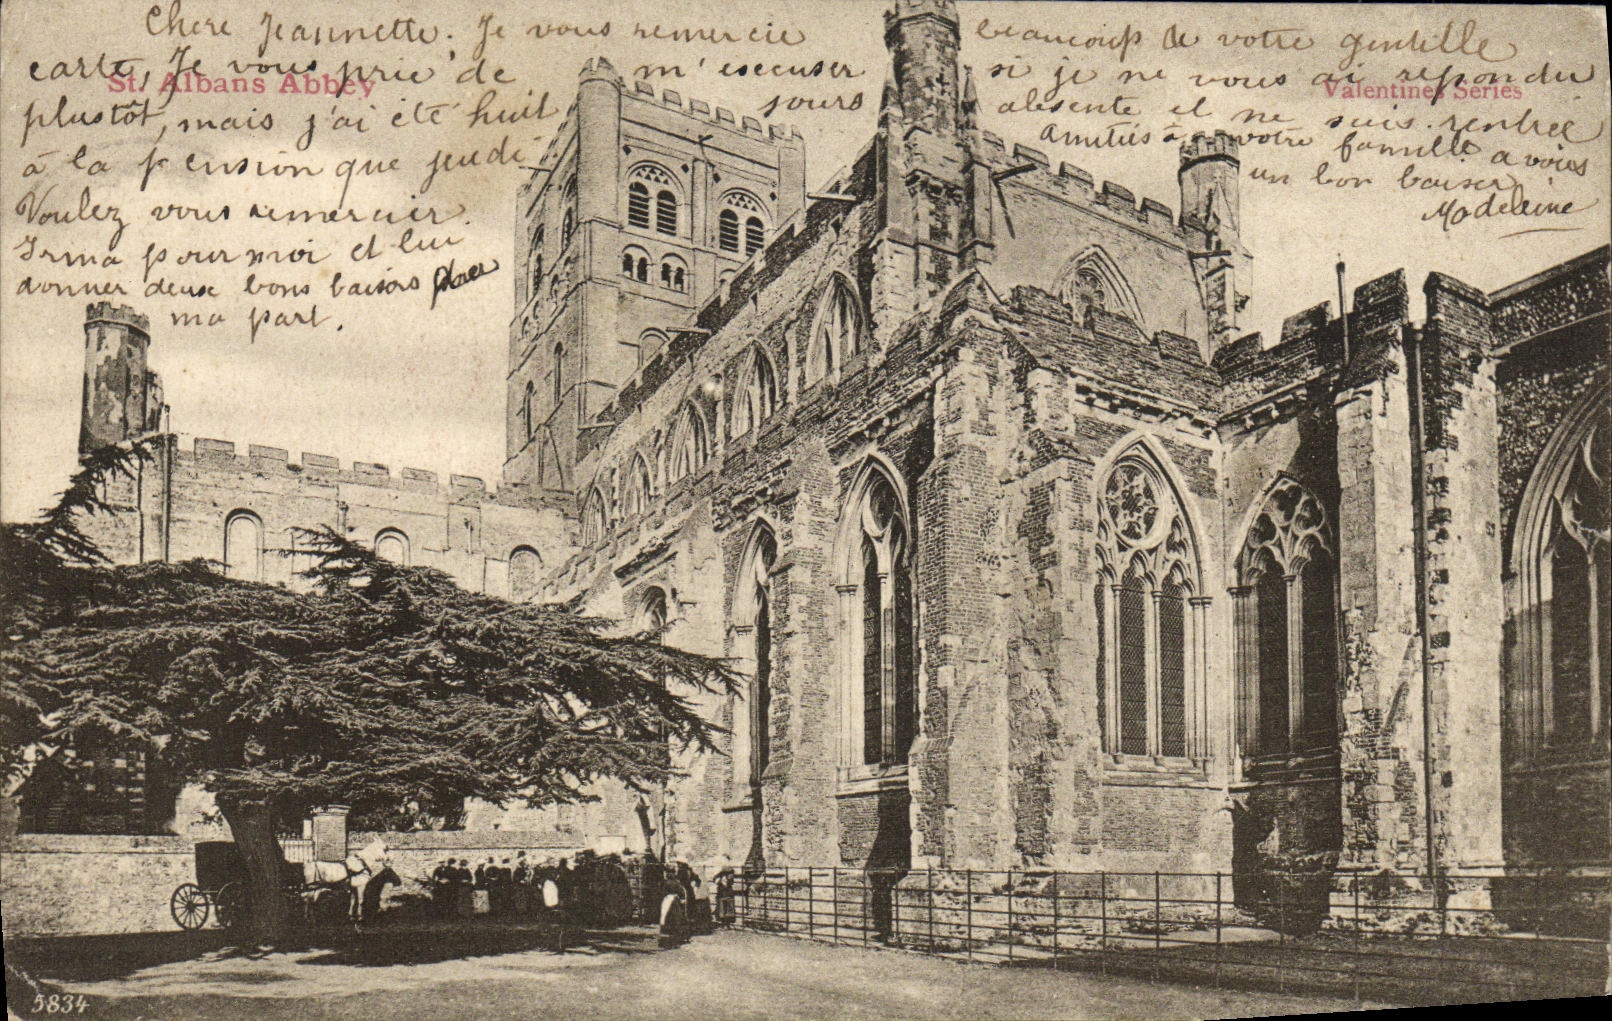 Chere Jeannette. Je vous remercie beaucoup de votre gentille
carte, Je vous prie de m'escuser si je ne vous ai repondu
plustôt, mais j'ai été huit jours absente et ne suis rentrée
à la pension que jeudi
Amitiés à votre famille a vous
un bon baiser
Madeleine
Voulez vous remercier
Irma pour moi et lui
donner deux bons baisers pour
ma part.
St. Albans Abbey
Valentines Series
5834